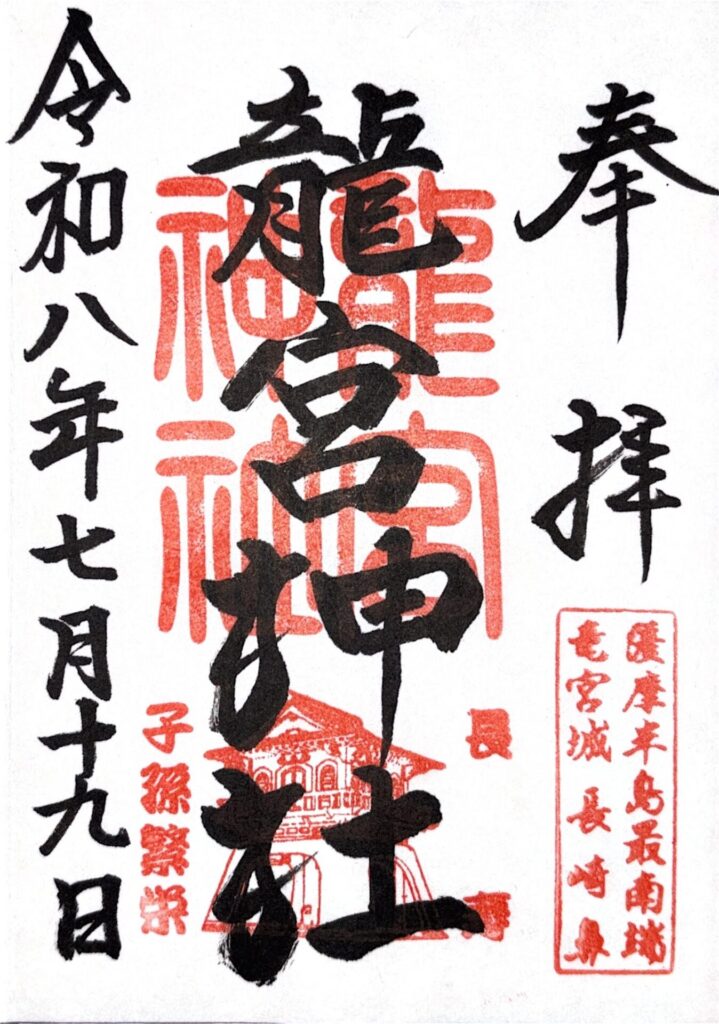 奉拝
薩摩半島最南端
竜宮城 長崎鼻
龍宮神社
龍宮
神社
長寿
子孫繁栄
令和八年七月十九日